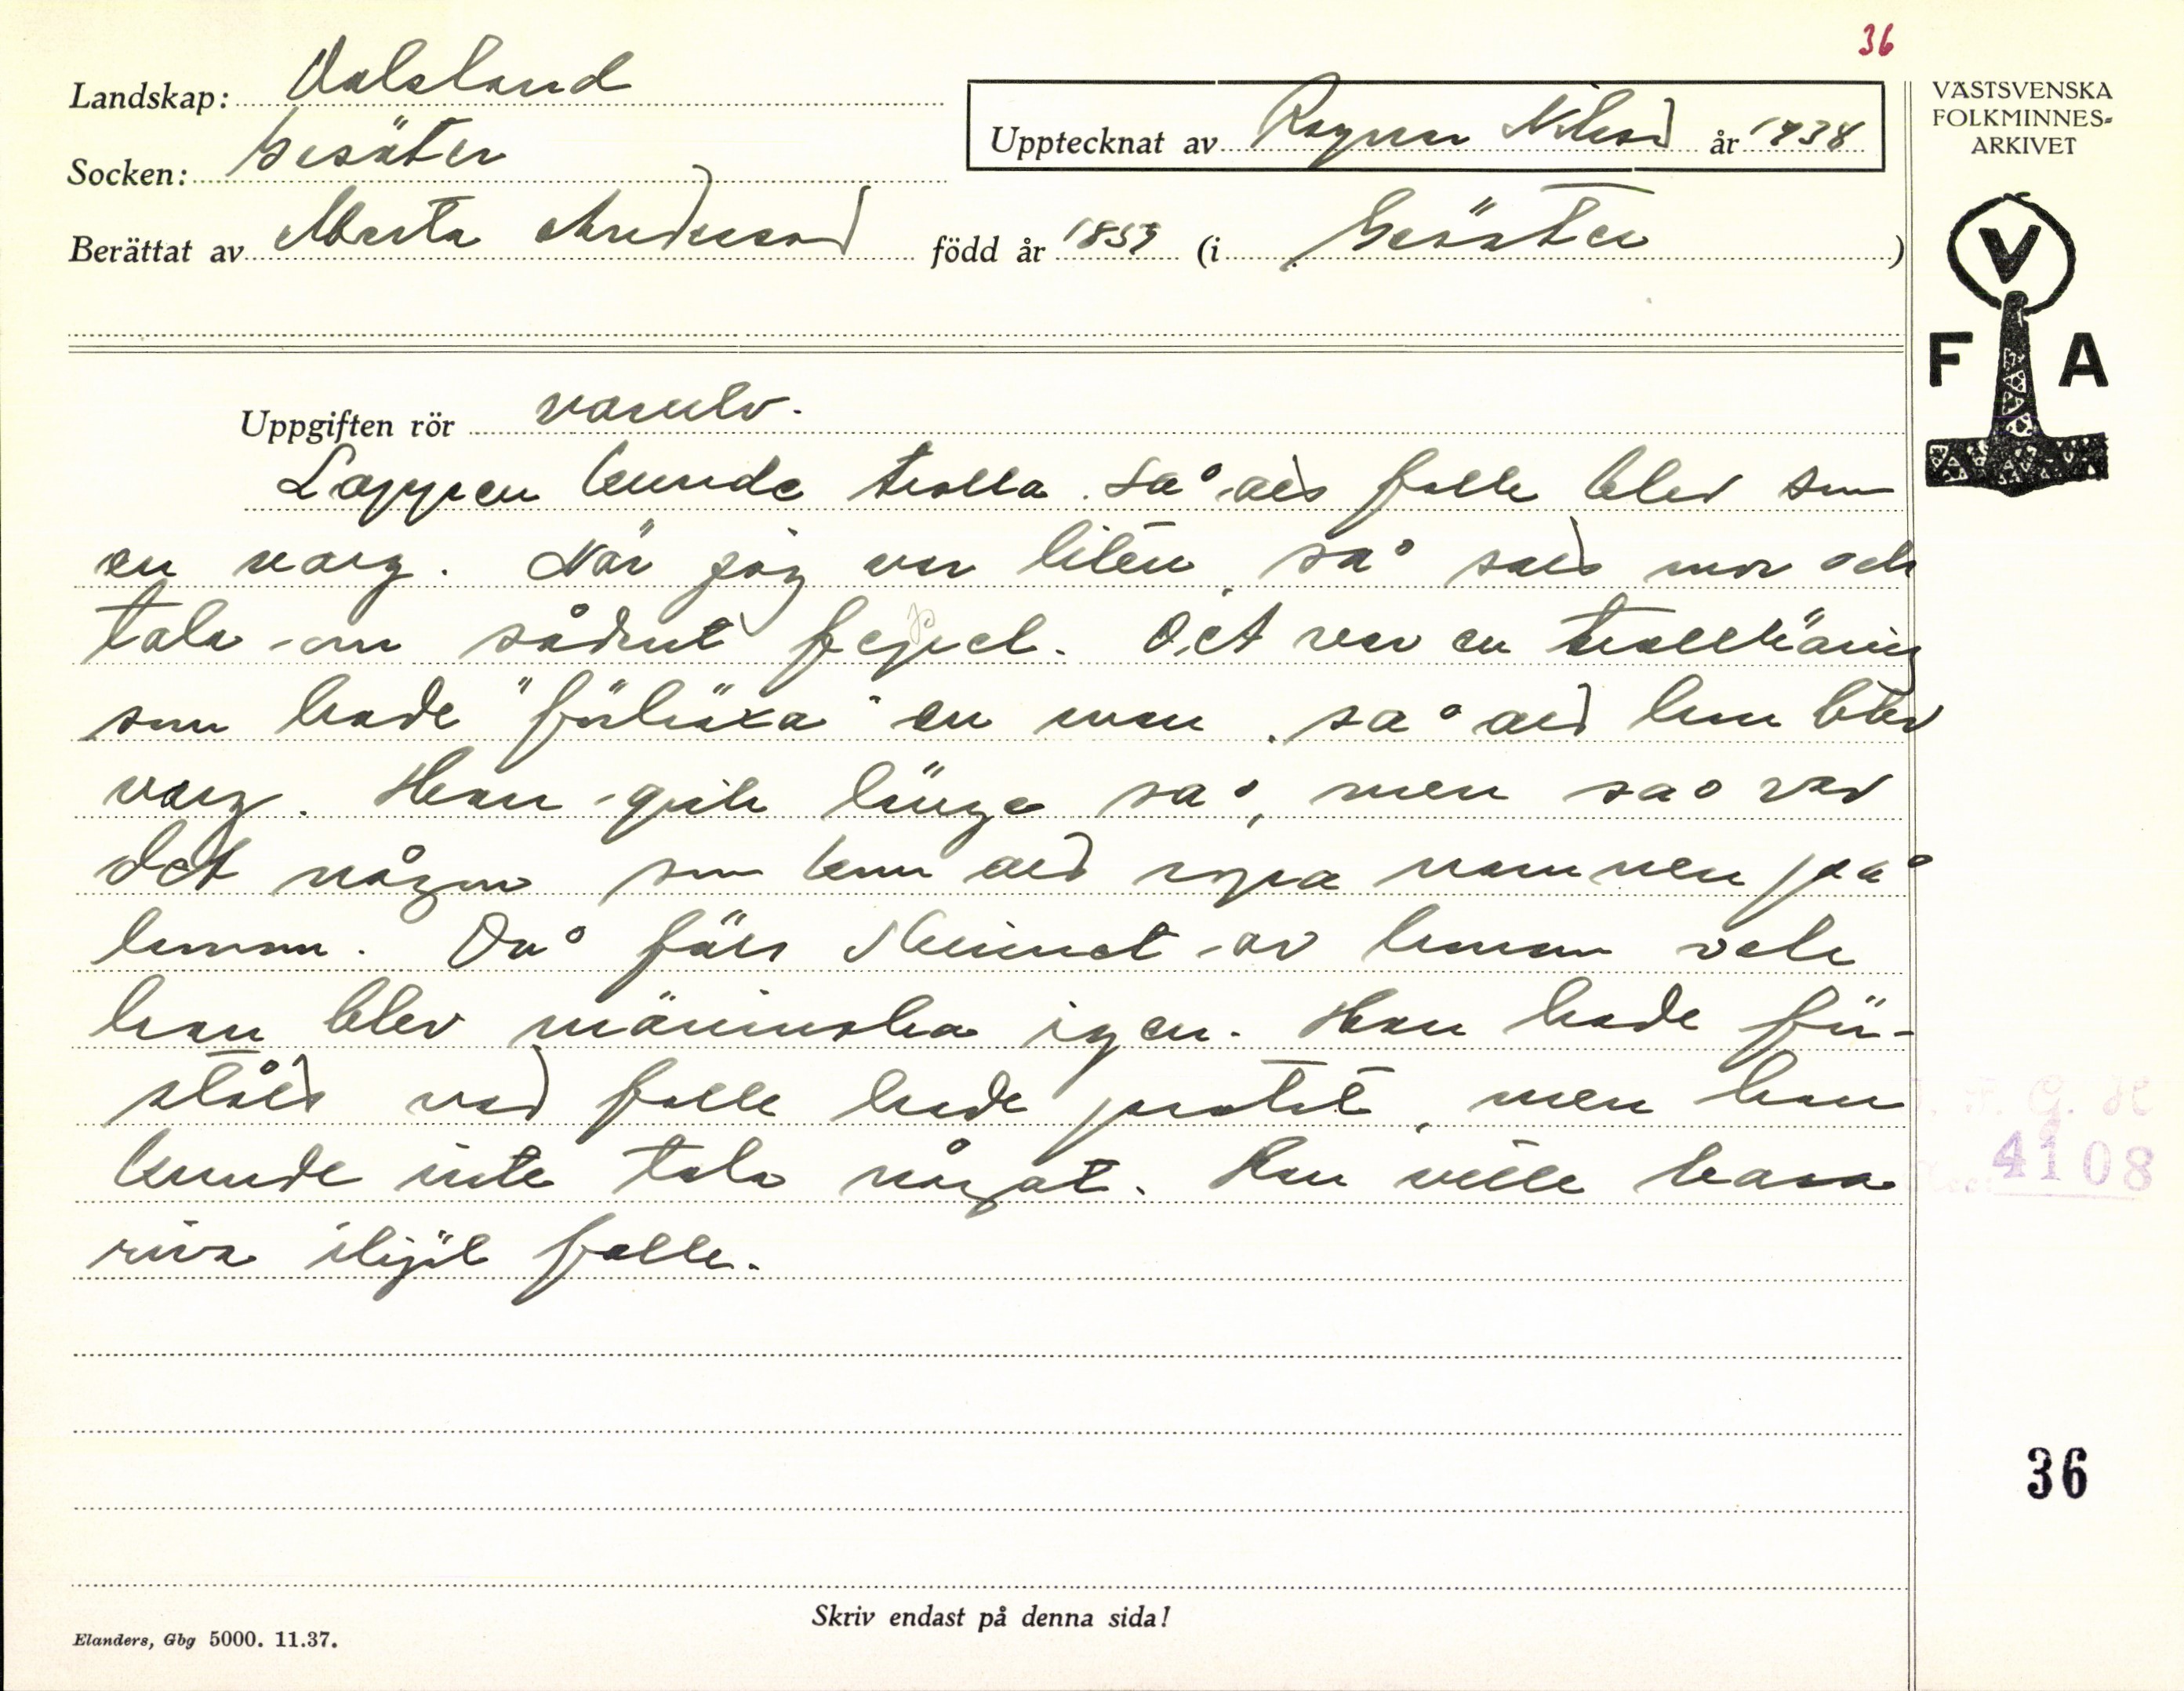 36
Landskap: Dalsland
Socken: Gesäter
Upptecknat av Ragnar Nilsson år 1938
Berättat av Marta Andersson född år 1859 (i Gesäter)
VÄSTSVENSKA
FOLKMINNES-
ARKIVET
V
F A
Uppgiften rör varulv.
Lappen kunde trolla så att folk blev som
en varg. När jag var liten så satt mor och
tala om sådant fepel. Det var en trollkäring
som hade "förhäxa" en man så att han blev
varg. Han gick länge så, men så var
det någon som kom att ropa namnen på
honom. Då föll skinnet av honom och
han blev människa igen. Han hade för-
stått vad folk hade pratat, men han
kunde inte tala något. Han ville bara
riva ihjäl folk.
I. F. G. H
4108
36
Skriv endast på denna sida!
Elanders, Gbg 5000. 11.37.